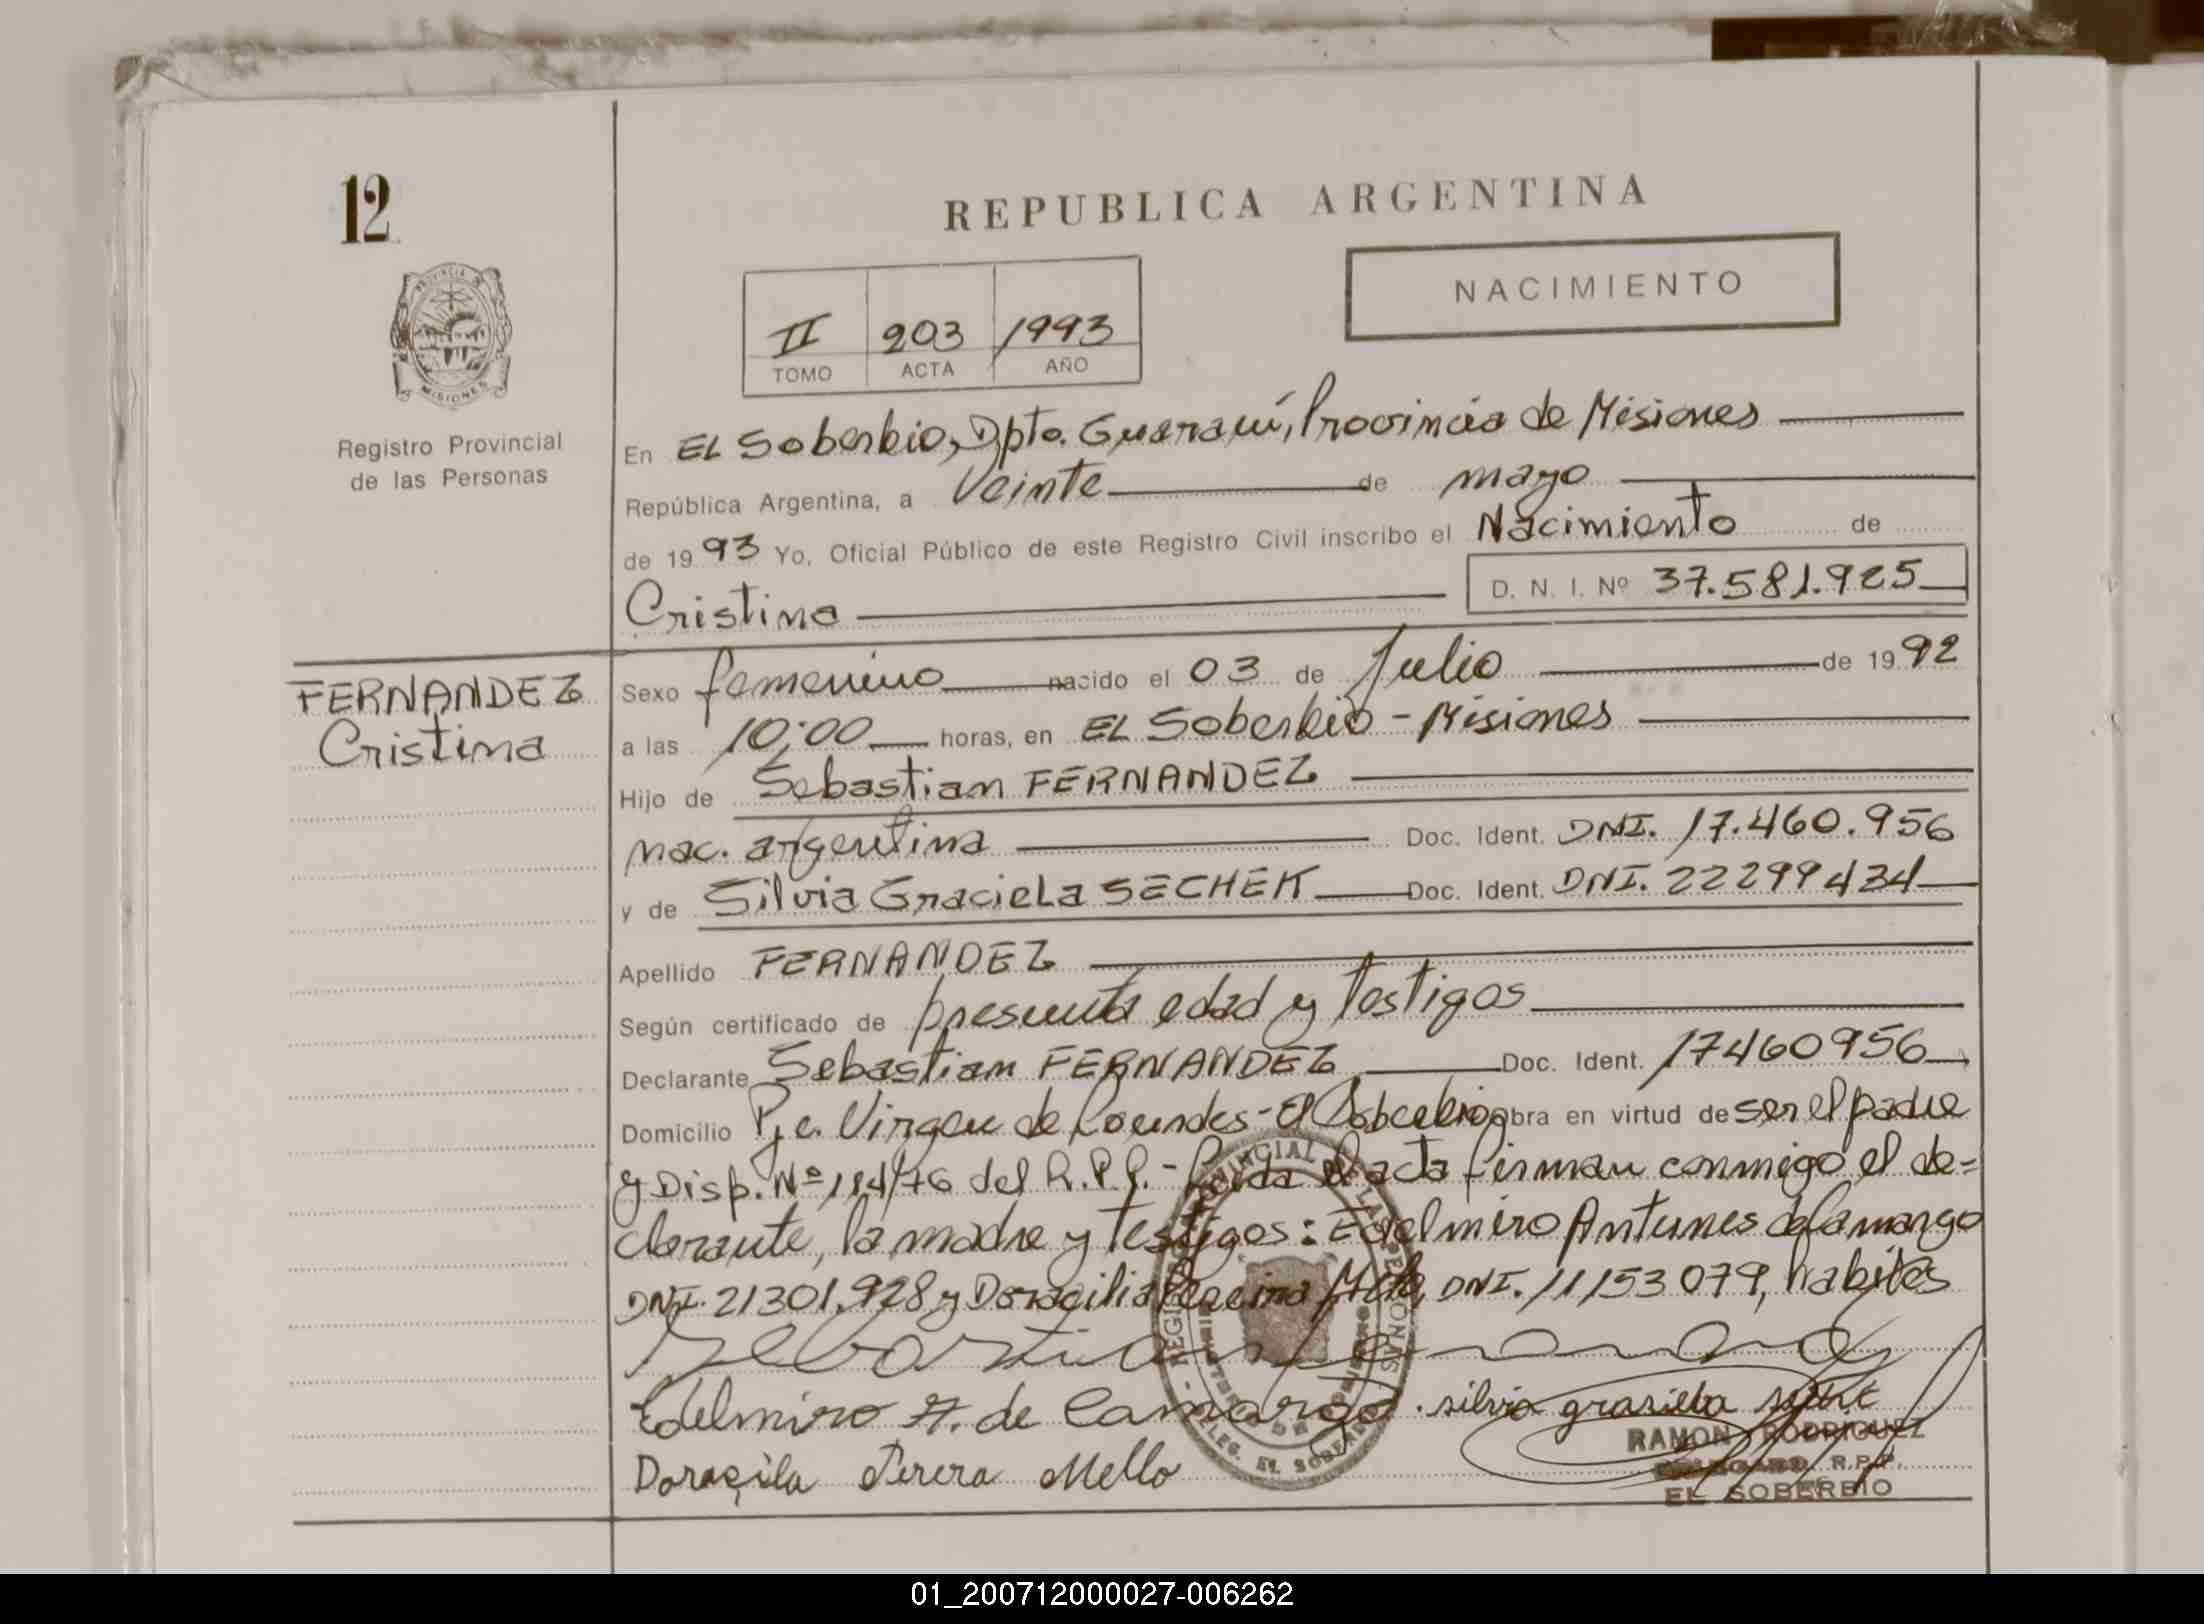 12
REPUBLICA ARGENTINA
NACIMIENTO
II 203 1993
TOMO ACTA AÑO
PROVINCIA DE MISIONES
Registro Provincial
de las Personas
En EL Soberbio, Dpto. Guaraní, Provincia de Misiones
República Argentina, a Veinte de mayo
de 1993 Yo, Oficial Público de este Registro Civil inscribo el Nacimiento de
Cristina D. N. I. Nº 37.581.925
FERNANDEZ
Cristina
Sexo femenino nacido el 03 de Julio de 1992
a las 10:00 horas, en EL Soberbio - Misiones
Hijo de Sebastian FERNANDEZ
nac. argentina Doc. Ident. DNI. 17.460.956
y de Silvia Graciela SECHEK Doc. Ident. DNI. 22299434
Apellido FERNANDEZ
Según certificado de presunta edad y testigos
Declarante Sebastian FERNANDEZ Doc. Ident. 17460956
Domicilio Pje. Virgen de Lourdes - El Soberbio obra en virtud de ser el padre
y Disp. Nº 114/76 del R.P.P. - Leida el acta firman conmigo el de=
clarante, la madre y testigos: Edelmiro Antunes de Camargo
DNI. 21301.928 y Doracilia Pereira Mello, DNI. 11153079, habiles
Sebastian Fernandez
Edelmiro A. de Camargo. silvia grasiela
Doraçila Perera Mello
REGISTRO PROVINCIAL DE LAS PERSONAS - DELEG. EL SOBERBIO
MINISTERIO DE GOBIERNO
RAMON RODRIGUEZ
R.P.P.
EL SOBERBIO
01_200712000027-006262